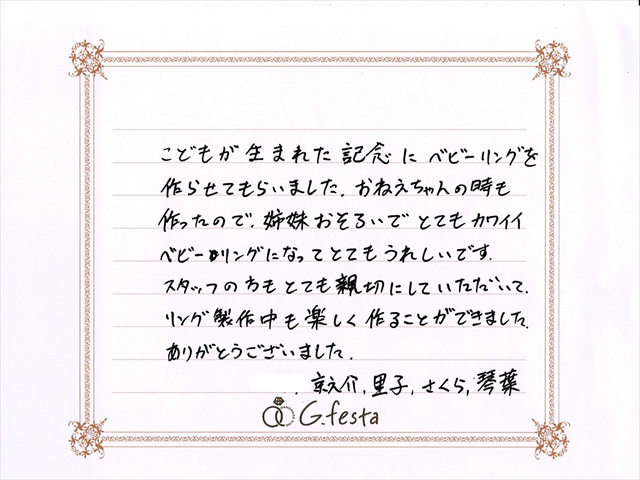 こどもが生まれた記念にベビーリングを
作らせてもらいました。おねえちゃんの時も
作ったので、姉妹おそろいでとてもカワイイ
ベビーリングになってとてもうれしいです。
スタッフの方もとても親切にしていただいて、
リング製作中も楽しく作ることができました。
ありがとうございました。
、京之介、里子、さくら、琴葉
G.festa